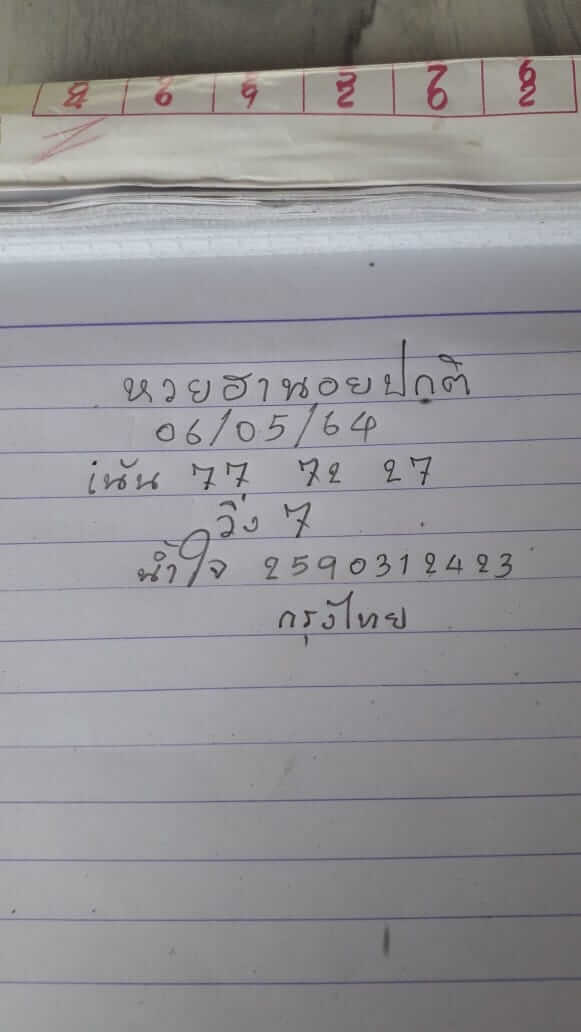 หวยฮานอยปกติ
06/05/64
เน้น 77 72 27
วิ่ง 7
น้ำใจ 2590312423
กรุงไทย